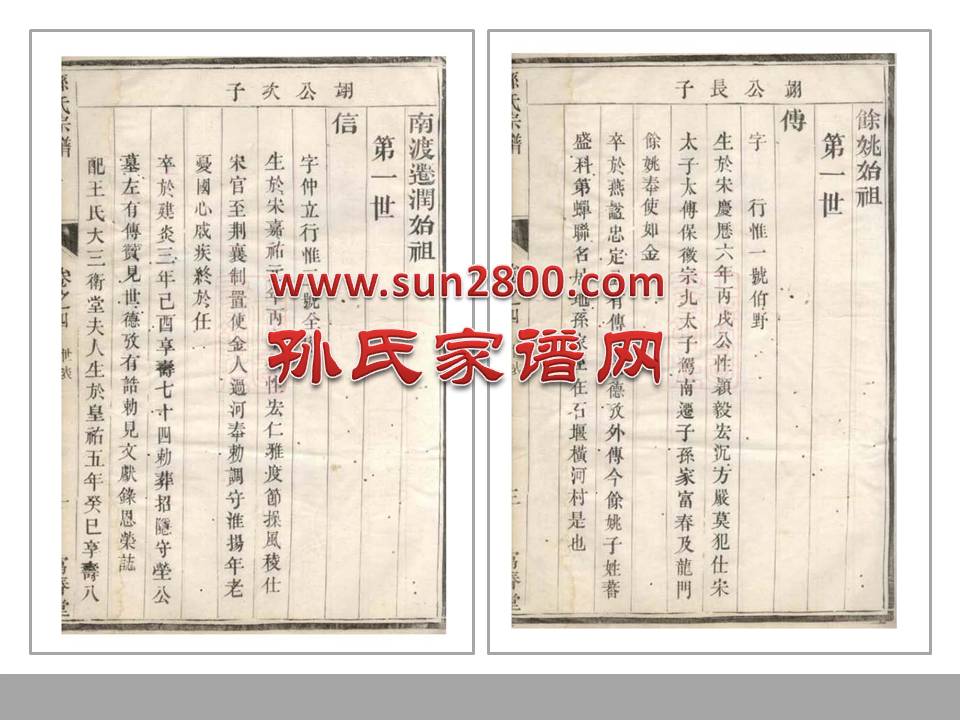 翊公長子
餘姚始祖
第一世
傳
字 行惟一號伯野
生於宋慶厯六年丙戌公性穎毅宏沉方嚴莫犯仕宋
太子太傅保徽宗九太子駕南遷子孫家富春及龍門
餘姚奉使如金
卒於燕諡忠定 有傳 德攷外傳今餘姚子姓蕃
盛科第蟬聯名 地孫家 在石堰橫河村是也
翊公次子
南渡遷潤始祖
第一世
信
字仲立行惟 號全
生於宋嘉祐元年丙 性宏仁雅度節操風稜仕
宋官至荆襄制置使金人過河奉勅調守淮揚年老
憂國心成疾終於任
卒於建炎三年己酉享壽七十四勅葬招隱守塋公
墓左有傳贊見世德攷有誥勅見文獻錄恩榮誌
配王氏大三衛堂夫人生於皇祐五年癸巳享壽八
孫氏宗譜
卷之四
世表
一
富春堂
www.sun2800.com
孙氏家谱网